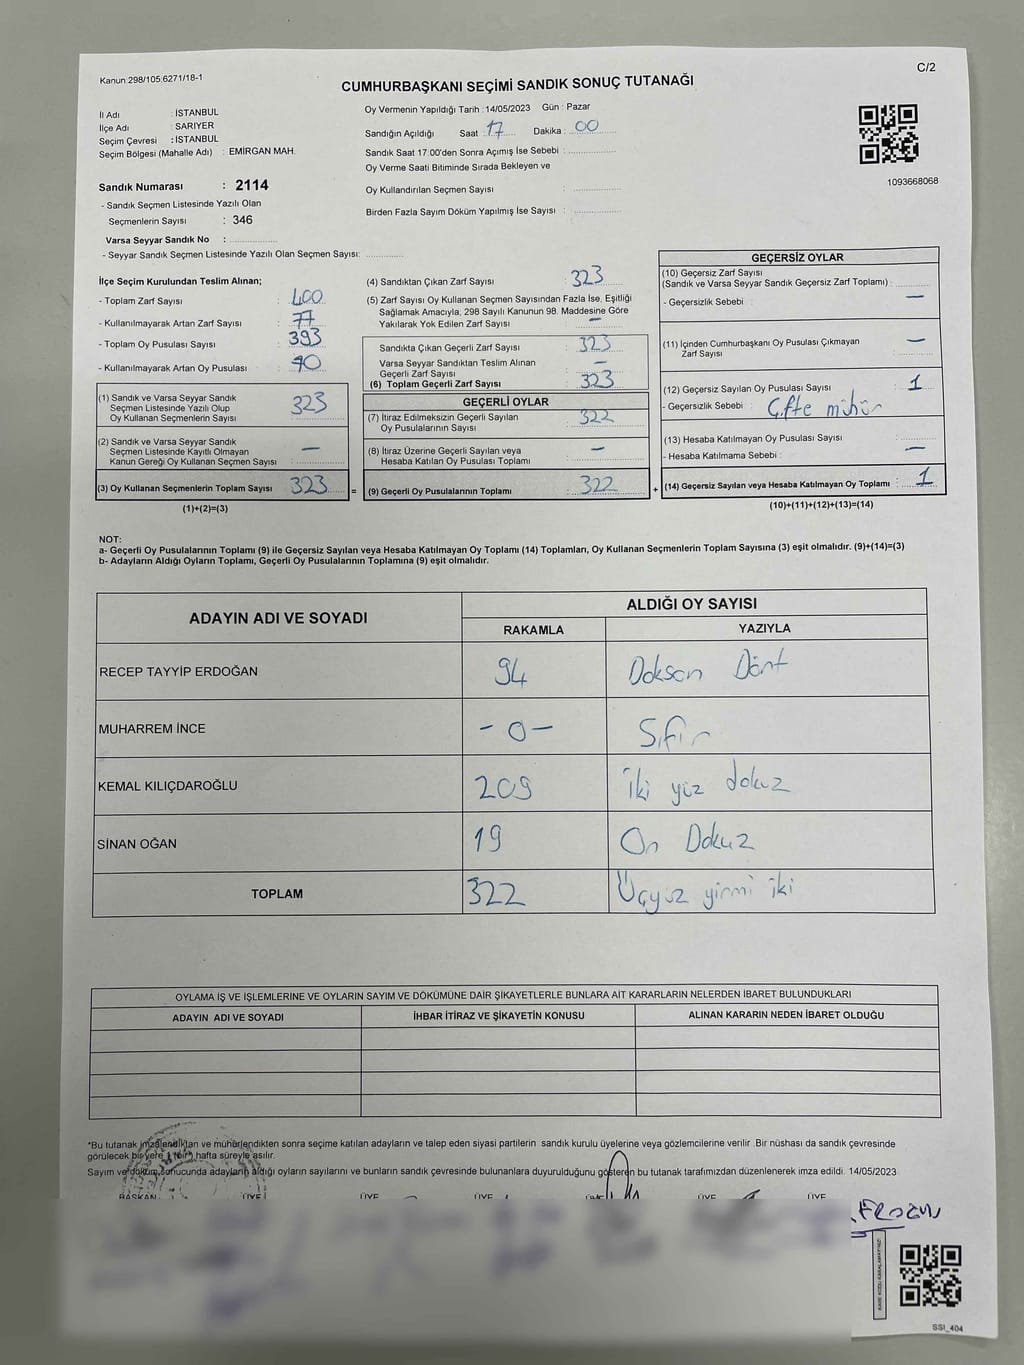 Kanun:298/105;6271/18-1
C/2
CUMHURBAŞKANI SEÇİMİ SANDIK SONUÇ TUTANAĞI
İl Adı : İSTANBUL
İlçe Adı : SARIYER
Seçim Çevresi : İSTANBUL
Seçim Bölgesi (Mahalle Adı) : EMİRGAN MAH.
Sandık Numarası : 2114
- Sandık Seçmen Listesinde Yazılı Olan
Seçmenlerin Sayısı : 346
Varsa Seyyar Sandık No :
- Seyyar Sandık Seçmen Listesinde Yazılı Olan Seçmen Sayısı:
Oy Vermenin Yapıldığı Tarih : 14/05/2023 Gün : Pazar
Sandığın Açıldığı Saat : 17 Dakika : 00
Sandık Saat 17:00'den Sonra Açımış İse Sebebi :
Oy Verme Saati Bitiminde Sırada Bekleyen ve
Oy Kullandırılan Seçmen Sayısı :
Birden Fazla Sayım Döküm Yapılmış İse Sayısı :
1093668068
İlçe Seçim Kurulundan Teslim Alınan;
- Toplam Zarf Sayısı : 400
- Kullanılmayarak Artan Zarf Sayısı : 77
- Toplam Oy Pusulası Sayısı : 393
- Kullanılmayarak Artan Oy Pusulası :
(1) Sandık ve Varsa Seyyar Sandık
Seçmen Listesinde Yazılı Olup
Oy Kullanan Seçmenlerin Sayısı 323
(2) Sandık ve Varsa Seyyar Sandık
Seçmen Listesinde Kayıtlı Olmayan
Kanun Gereği Oy Kullanan Seçmen Sayısı : —
(3) Oy Kullanan Seçmenlerin Toplam Sayısı 323 =
(1)+(2)=(3)
(4) Sandıktan Çıkan Zarf Sayısı : 323
(5) Zarf Sayısı Oy Kullanan Seçmen Sayısından Fazla İse, Eşitliği
Sağlamak Amacıyla, 298 Sayılı Kanunun 98. Maddesine Göre
Yakılarak Yok Edilen Zarf Sayısı : —
Sandıkta Çıkan Geçerli Zarf Sayısı : 323
Varsa Seyyar Sandıktan Teslim Alınan
Geçerli Zarf Sayısı : —
(6) Toplam Geçerli Zarf Sayısı : 323
GEÇERLİ OYLAR
(7) İtiraz Edilmeksizin Geçerli Sayılan
Oy Pusulalarının Sayısı : 322
(8) İtiraz Üzerine Geçerli Sayılan veya
Hesaba Katılan Oy Pusulası Toplamı : —
(9) Geçerli Oy Pusulalarının Toplamı : 322 +
GEÇERSİZ OYLAR
(10) Geçersiz Zarf Sayısı
(Sandık ve Varsa Seyyar Sandık Geçersiz Zarf Toplamı) :
- Geçersizlik Sebebi : —
(11) İçinden Cumhurbaşkanı Oy Pusulası Çıkmayan
Zarf Sayısı : —
(12) Geçersiz Sayılan Oy Pusulası Sayısı : 1
- Geçersizlik Sebebi : Çifte mühür
(13) Hesaba Katılmayan Oy Pusulası Sayısı :
- Hesaba Katılmama Sebebi : —
(14) Geçersiz Sayılan veya Hesaba Katılmayan Oy Toplamı : 1
(10)+(11)+(12)+(13)=(14)
NOT:
a- Geçerli Oy Pusulalarının Toplamı (9) ile Geçersiz Sayılan veya Hesaba Katılmayan Oy Toplamı (14) Toplamları, Oy Kullanan Seçmenlerin Toplam Sayısına (3) eşit olmalıdır. (9)+(14)=(3)
b- Adayların Aldığı Oyların Toplamı, Geçerli Oy Pusulalarının Toplamına (9) eşit olmalıdır.
ADAYIN ADI VE SOYADI ALDIĞI OY SAYISI
RAKAMLA YAZIYLA
RECEP TAYYİP ERDOĞAN 94 Doksan Dört
MUHARREM İNCE - 0 - Sıfır
KEMAL KILIÇDAROĞLU 209 İki yüz dokuz
SİNAN OĞAN 19 On Dokuz
TOPLAM 322 Üçyüz yirmi iki
OYLAMA İŞ VE İŞLEMLERİNE VE OYLARIN SAYIM VE DÖKÜMÜNE DAİR ŞİKAYETLERLE BUNLARA AİT KARARLARIN NELERDEN İBARET BULUNDUKLARI
ADAYIN ADI VE SOYADI İHBAR İTİRAZ VE ŞİKAYETİN KONUSU ALINAN KARARIN NEDEN İBARET OLDUĞU
*Bu tutanak imzalandıktan ve mühürlendikten sonra seçime katılan adayların ve talep eden siyasi partilerin sandık kurulu üyelerine veya gözlemcilerine verilir. Bir nüshası da sandık çevresinde
görülecek bir yere 1 (bir) hafta süreyle asılır.
Sayım ve döküm sonucunda adayların aldığı oyların sayılarını ve bunların sandık çevresinde bulunanlara duyurulduğunu gösteren bu tutanak tarafımızdan düzenlenerek imza edildi. 14/05/2023
BAŞKAN ÜYE ÜYE ÜYE ÜYE ÜYE ÜYE
SSI_404